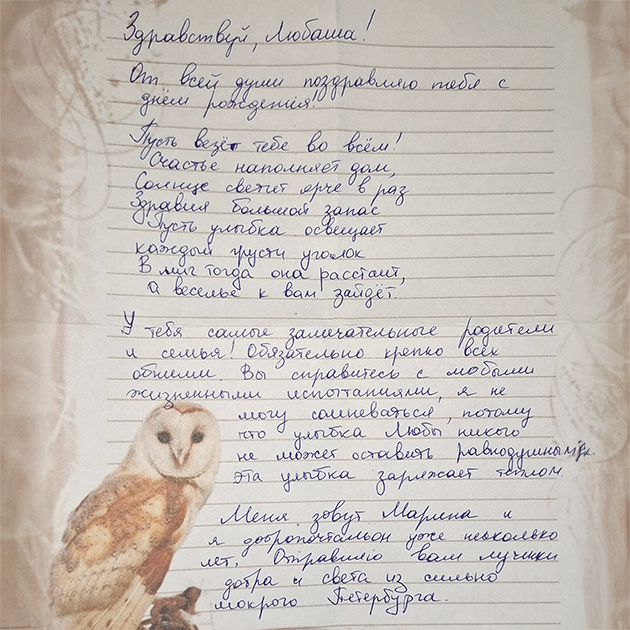 Здравствуй, Любаша!
От всей души поздравляю тебя с
днём рождения!
Пусть везёт тебе во всём!
Счастье наполняет дом,
Солнце светит ярче в раз
Здравия большой запас
Пусть улыбка освещает
каждый грусти уголок
В миг тогда она растает,
а веселье к вам зайдёт.
У тебя самые замечательные родители
и семья! Обязательно крепко всех
обними. Вы справитесь с любыми
жизненными испытаниями, я не
могу сомневаться, потому
что улыбка Любы никого
не может оставить равнодушным
Эта улыбка заряжает теплом.
Меня зовут Марина и
я добропочтальон уже несколько
лет. Отправляю вам лучики
добра и света из сильно
мокрого Петербурга.